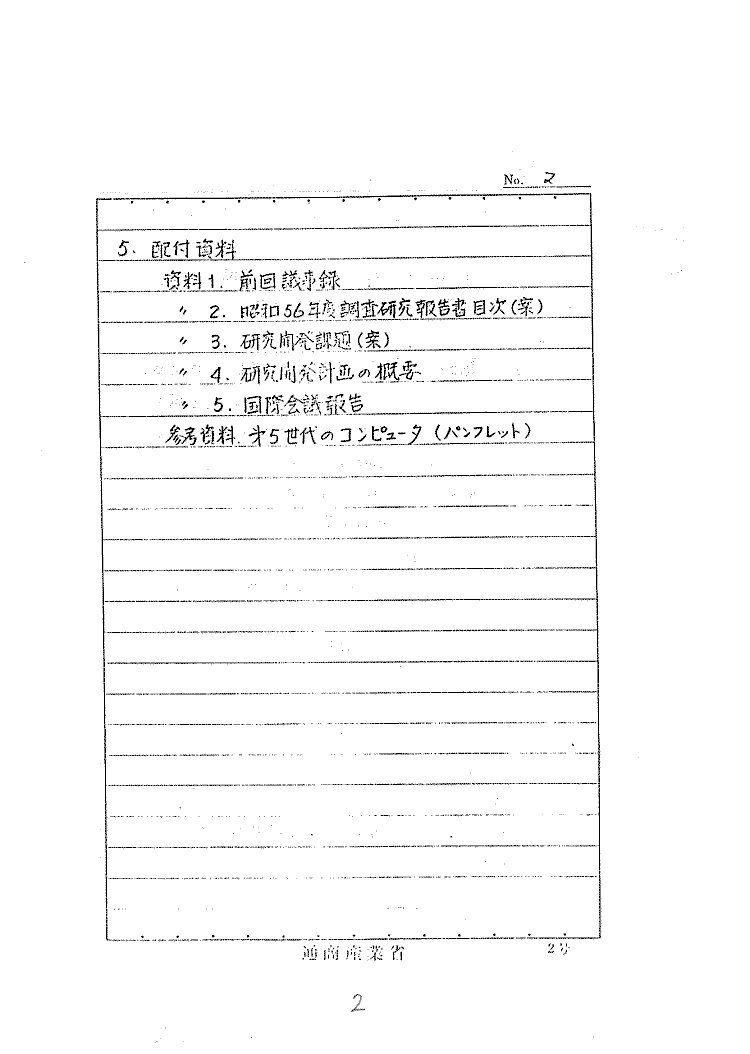 No. 2
5. 配付資料
資料1. 前回議事録
〃 2. 昭和56年度調査研究報告書目次(案)
〃 3. 研究開発課題(案)
〃 4. 研究開発計画の概要
〃 5. 国際会議報告
参考資料. 才5世代のコンピュータ (パンフレット)
通商産業省
2号
2